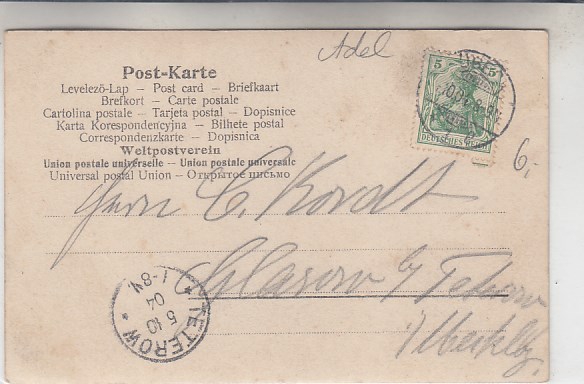 Adel
Post-Karte
Levelező-Lap – Post card – Briefkaart
Brefkort – Carte postale
Cartolina postale – Tarjeta postal – Dopisnice
Karta Korespondencyjna – Bilhete postal
Correspondenzkarte – Dopisnica
Weltpostverein
Union postale universelle – Union postale universale
Universal postal Union – Открытое письмо
5 5
DEUTSCHES REICH
6,-
Herrn C. Kordt
Glasow b/ Teterow
i/ Mecklbg.
TETEROW
5 10
04
7-8N